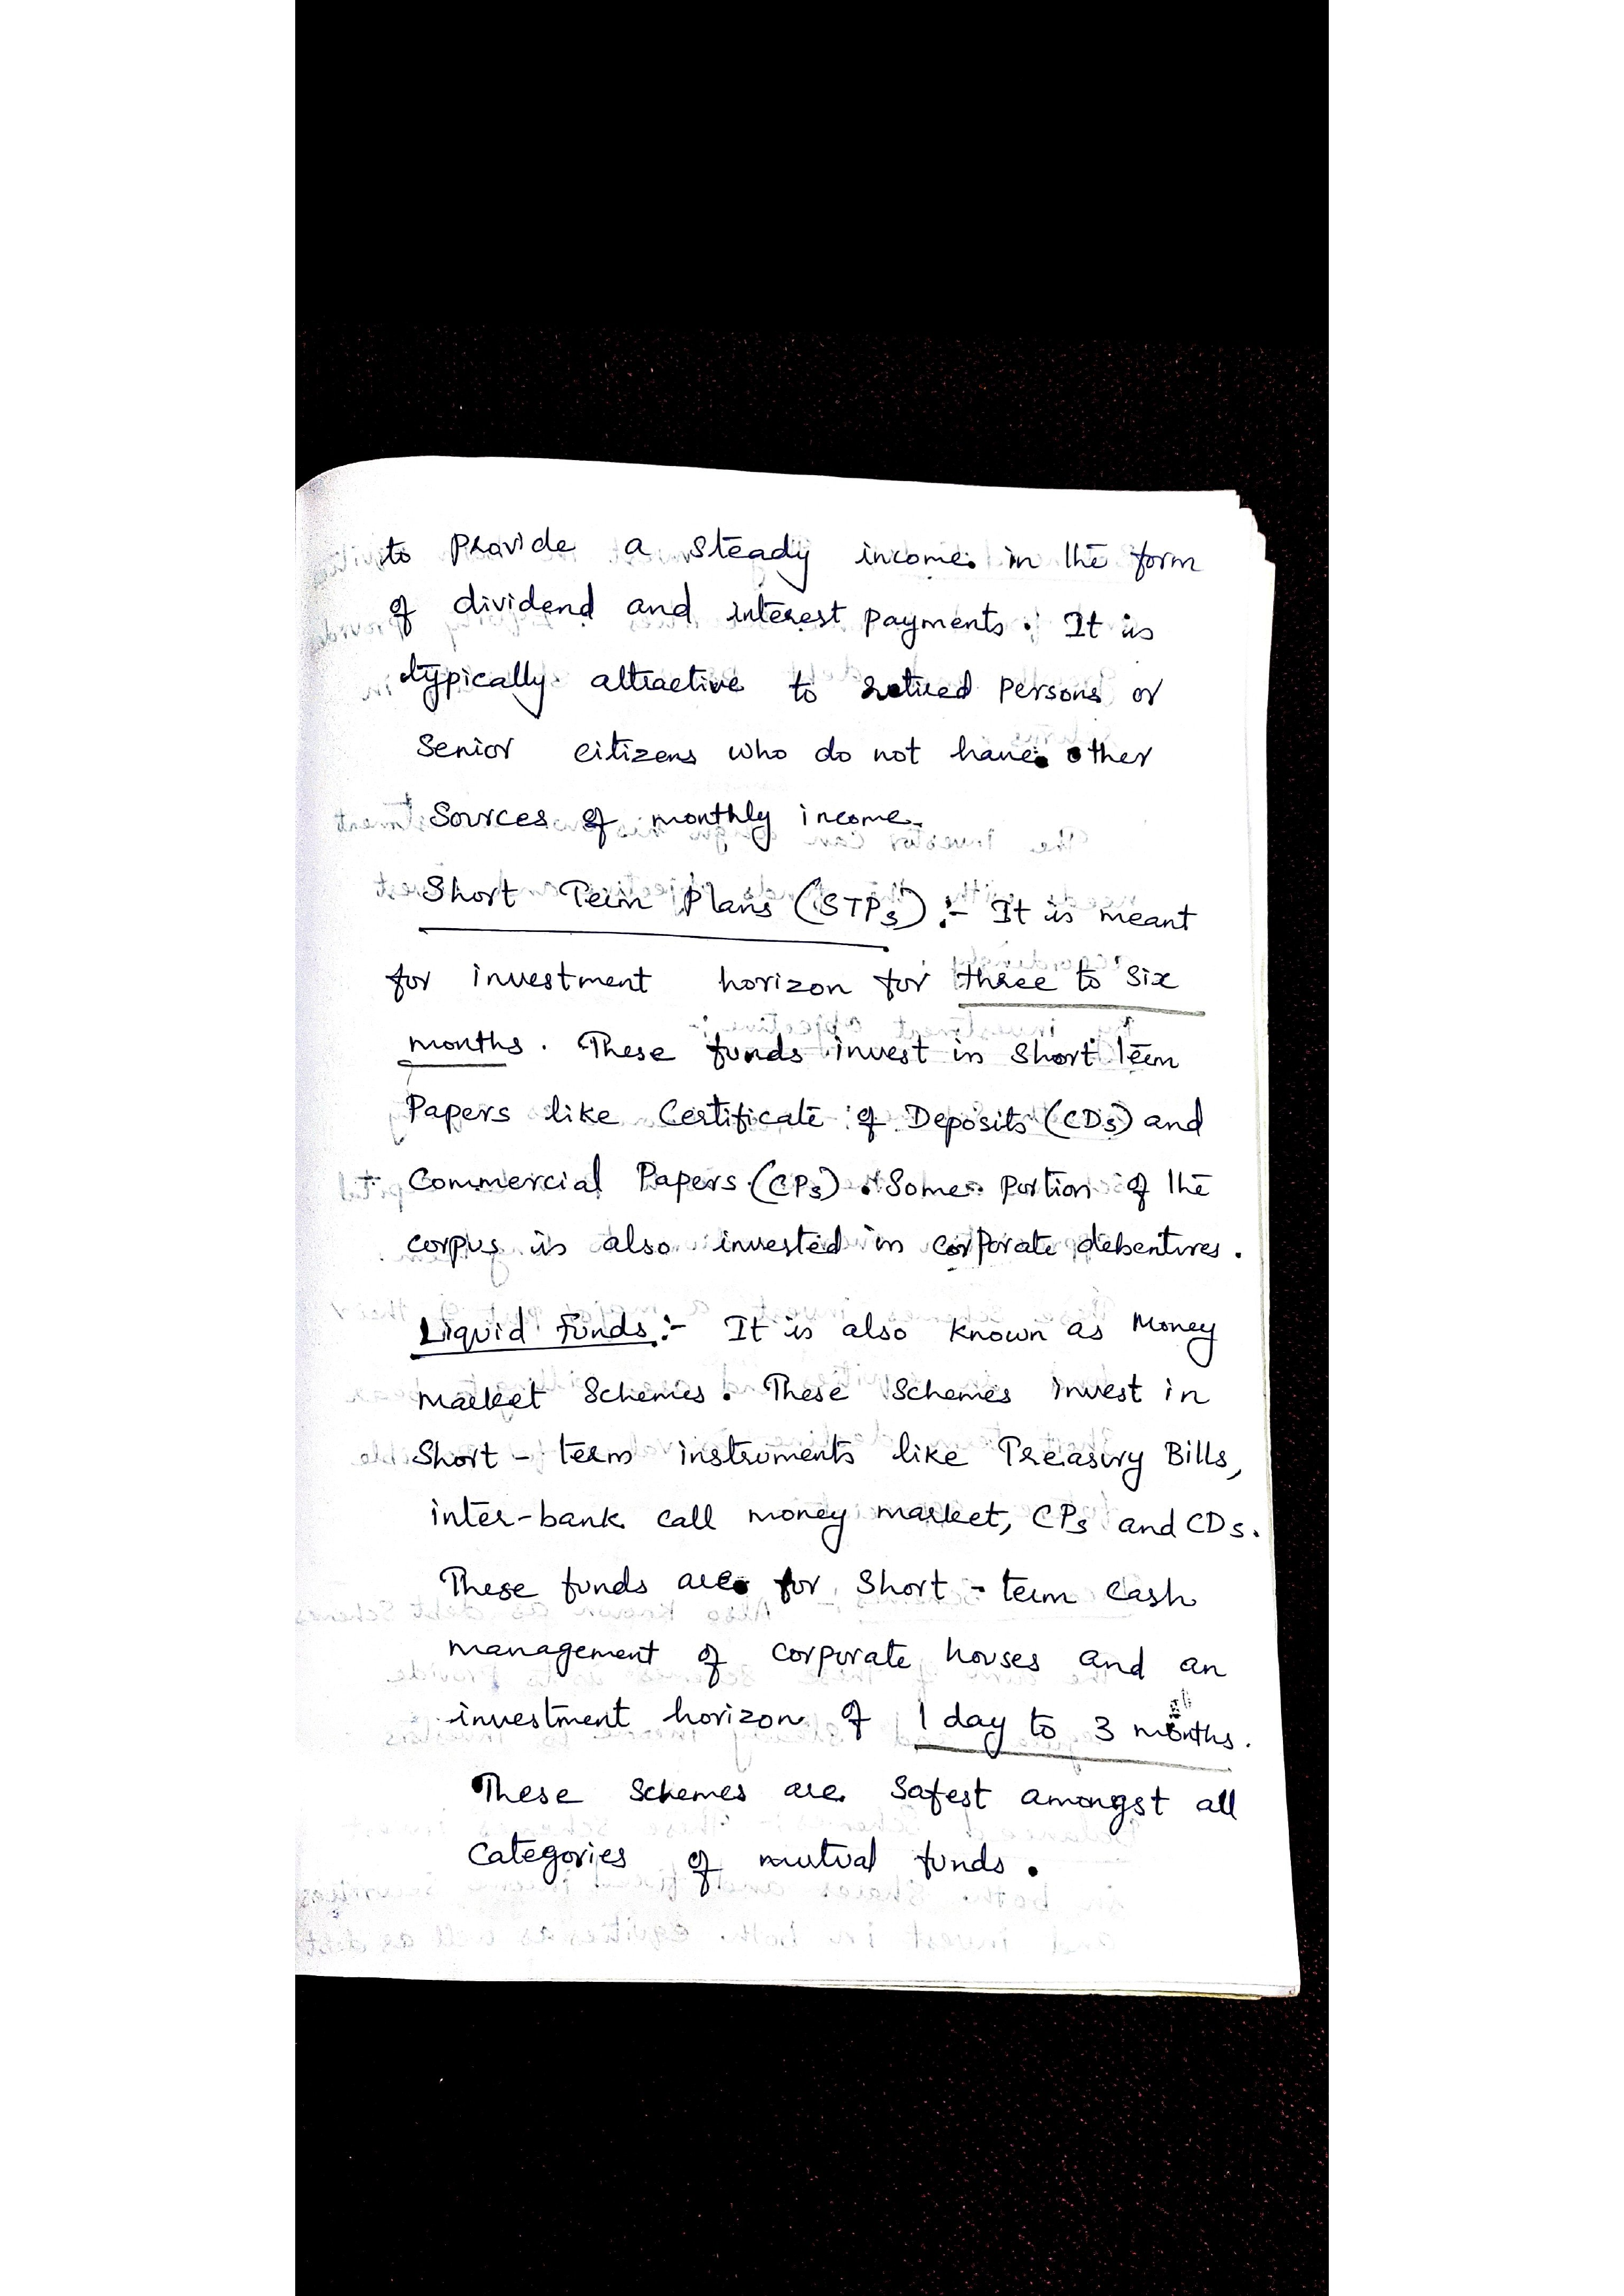 to provide a steady income in the form
of dividend and interest payments. It is
typically attractive to retired persons or
Senior citizens who do not have other
Sources of monthly income.
Short Term Plans (STPs) :- It is meant
for investment horizon for three to six
months. These funds invest in Short Term
Papers like Certificate of Deposits (CDs) and
Commercial Papers (CPs). Some portion of the
corpus is also invested in corporate debentures.
Liquid Funds :- It is also known as Money
market Schemes. These Schemes invest in
Short - term instruments like Treasury Bills,
inter-bank call money market, CPs and CDs.
These funds are for Short - term cash
management of corporate houses and an
investment horizon of 1 day to 3 months.
These Schemes are Safest amongst all
Categories of mutual funds.